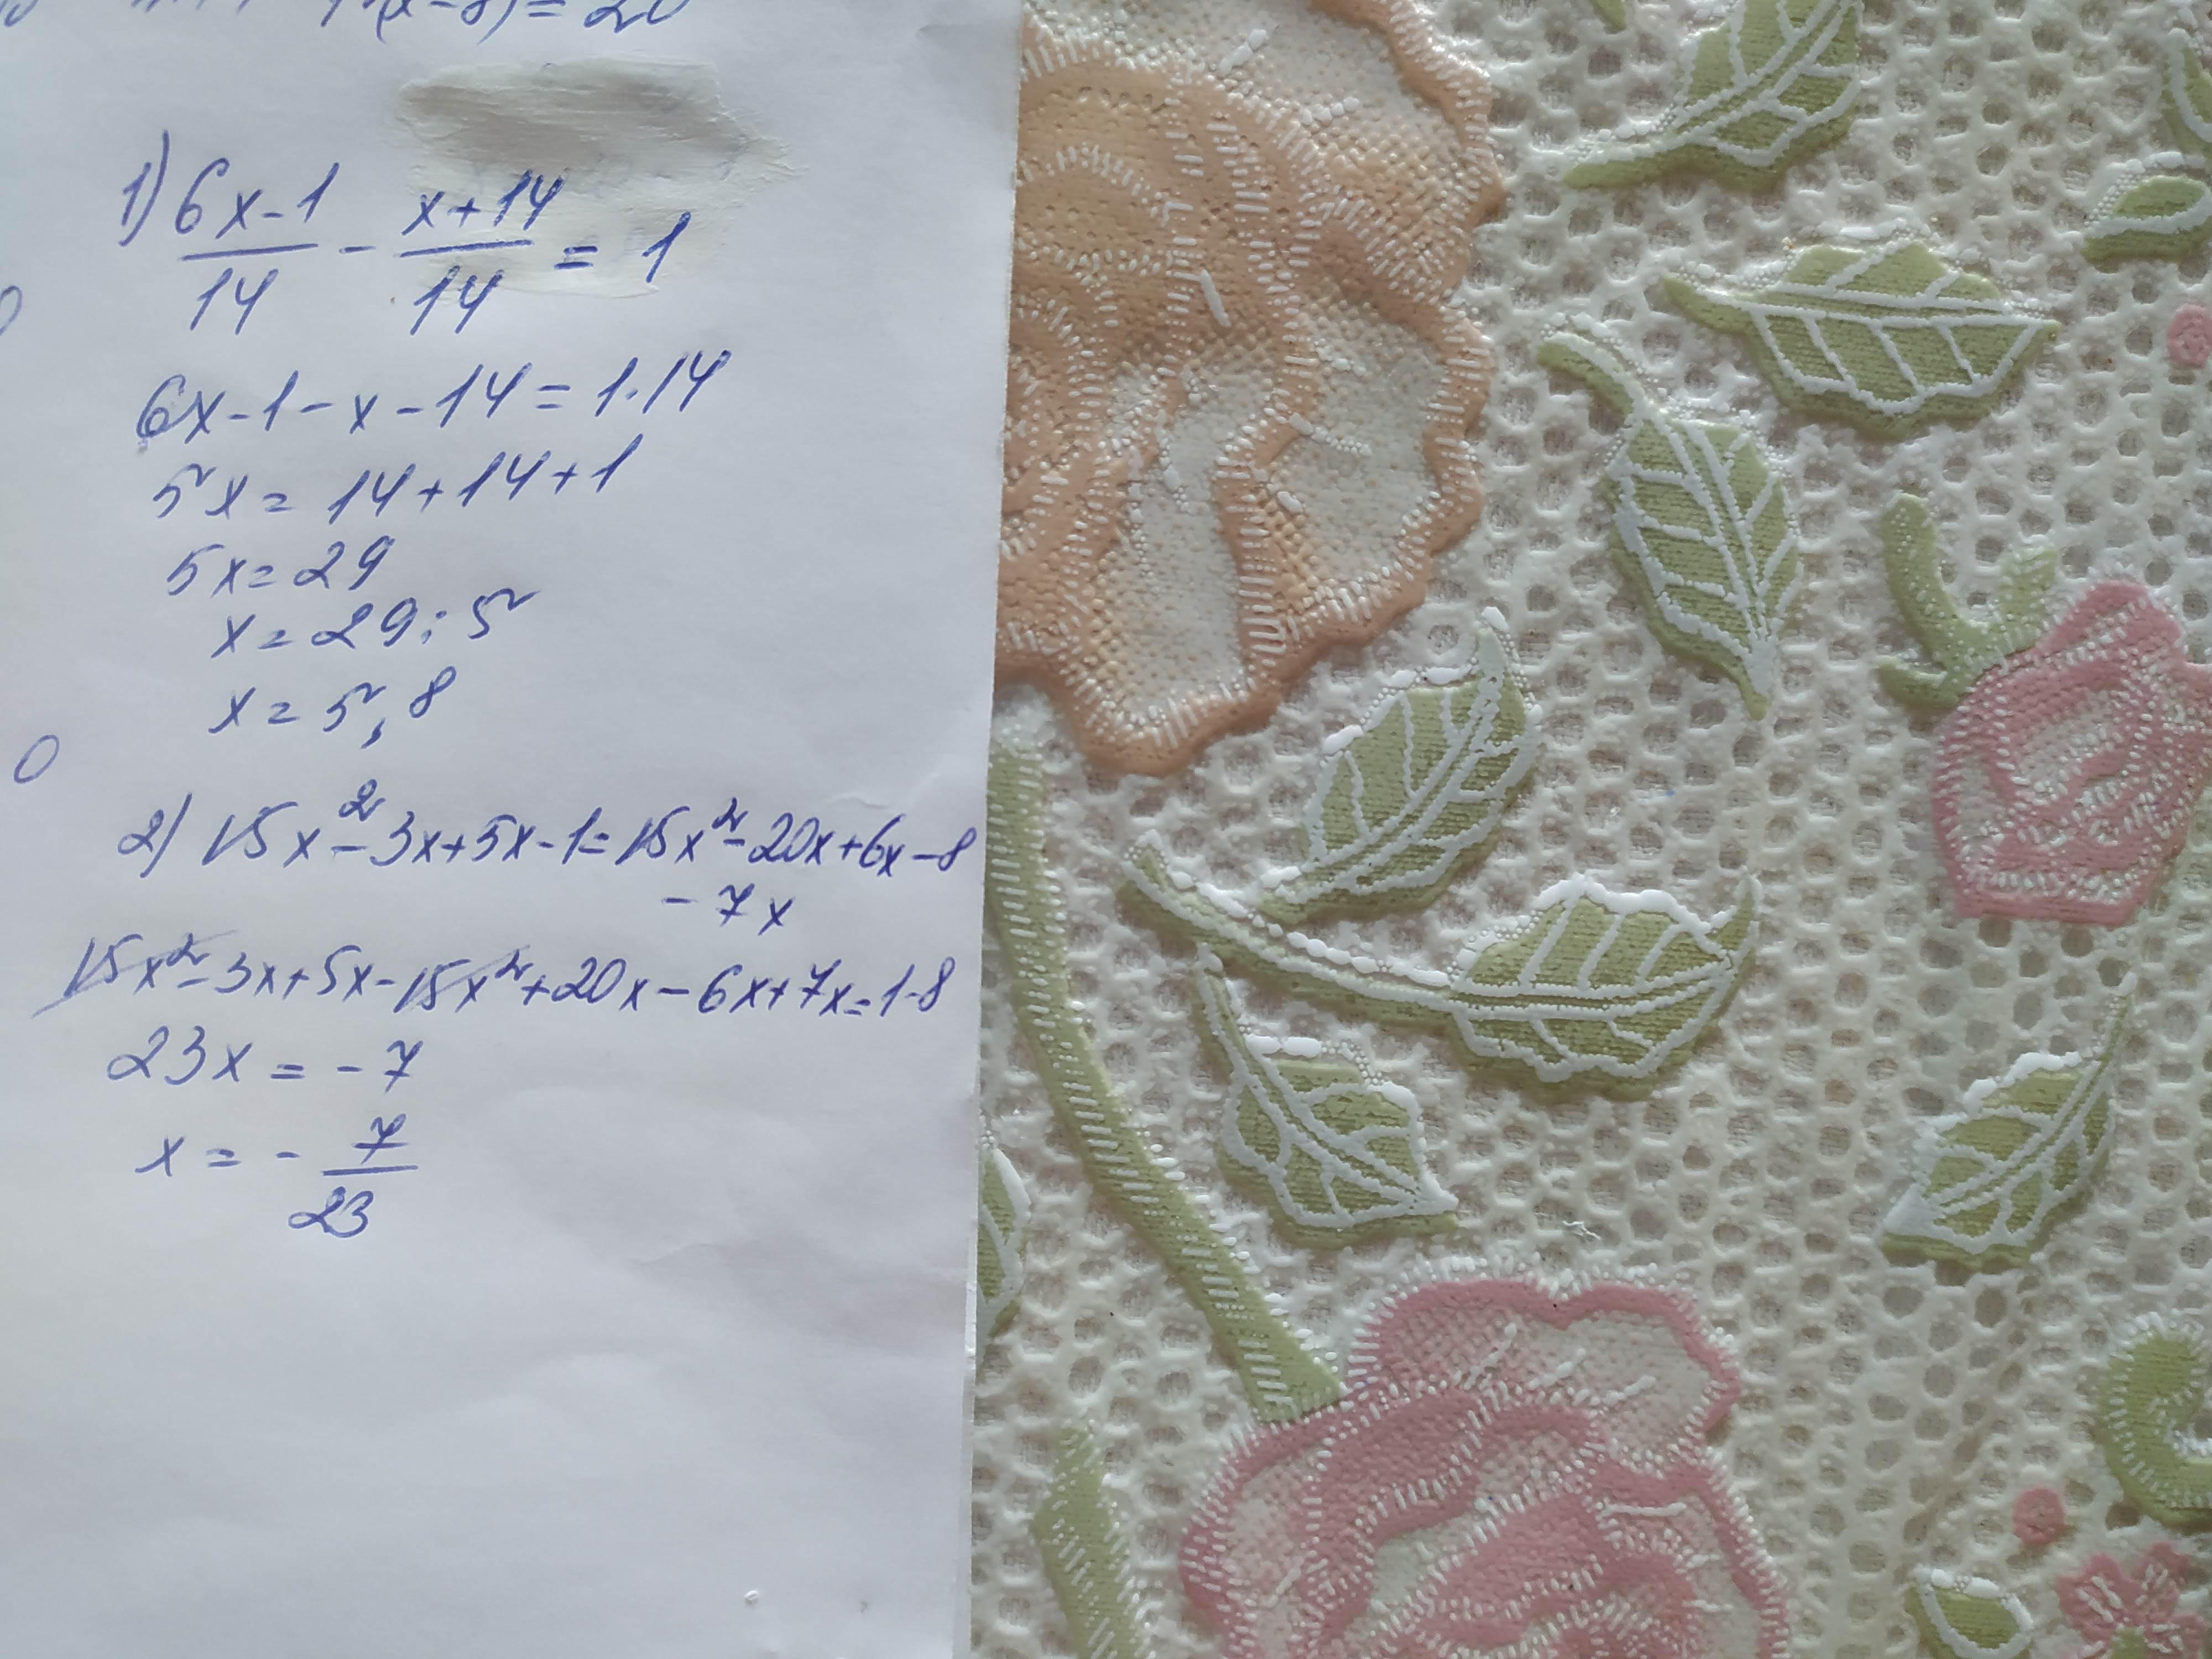 (x-8)=20
1) 6x-1/14 - x+14/14 = 1
6x-1-x-14=1·14
5x=14+14+1
5x=29
x=29:5
x=5,8
2) 15x²-3x+5x-1=15x²-20x+6x-8
-7x
15x²-3x+5x-15x²+20x-6x+7x=1-8
23x=-7
x=-7/23